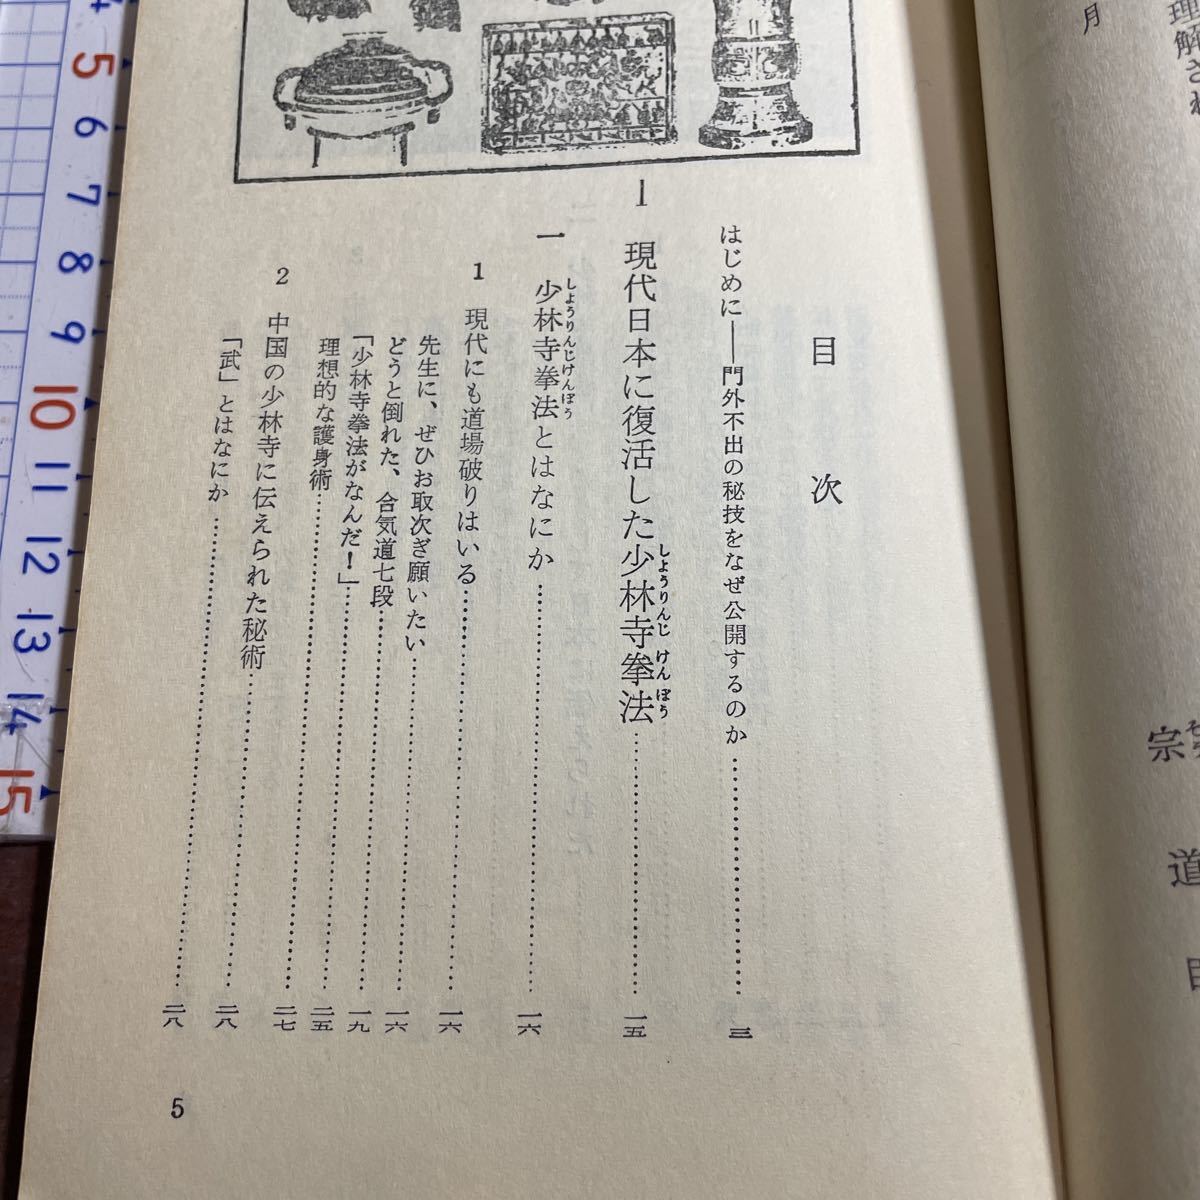 理解され
月
宗 道
目次
はじめに――門外不出の秘技をなぜ公開するのか……三
I 現代日本に復活した少林寺拳法……一五
しょうりんじ けん ぽう
一 少林寺拳法とはなにか……一六
しょうりんじけんぽう
1 現代にも道場破りはいる……一六
先生に、ぜひお取次ぎ願いたい……一六
どうと倒れた、合気道七段……一九
「少林寺拳法がなんだ!」……二五
理想的な護身術……二七
2 中国の少林寺に伝えられた秘術……二八
「武」とはなにか……二八
5
4
5
6
7
8
9
10
11
12
13
14
15